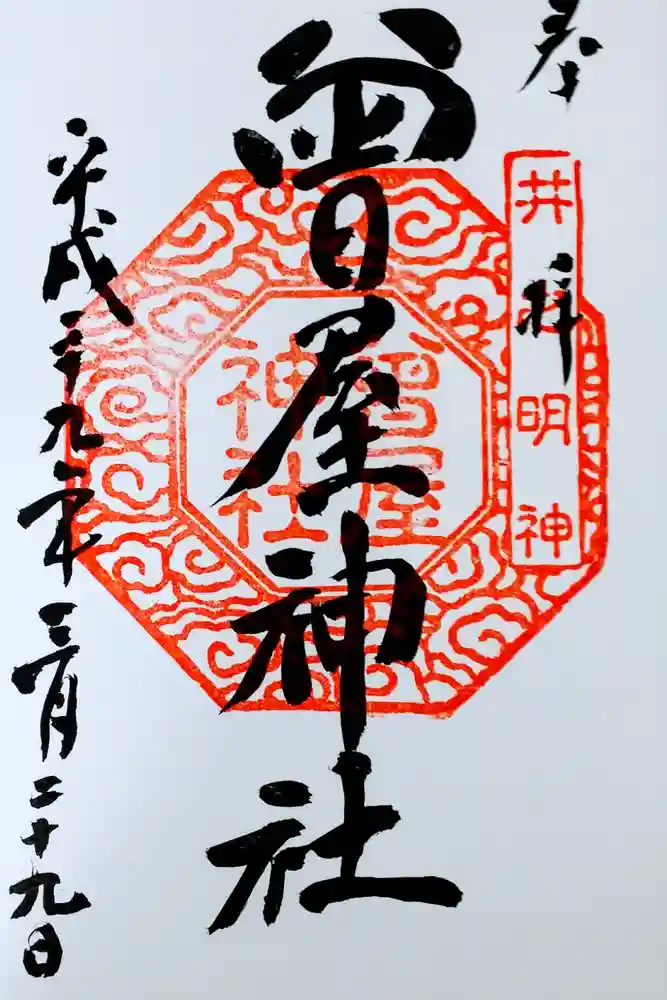 奉拝
井明神
曾屋神社
曾屋
神社
平成二十九年三月二十九日